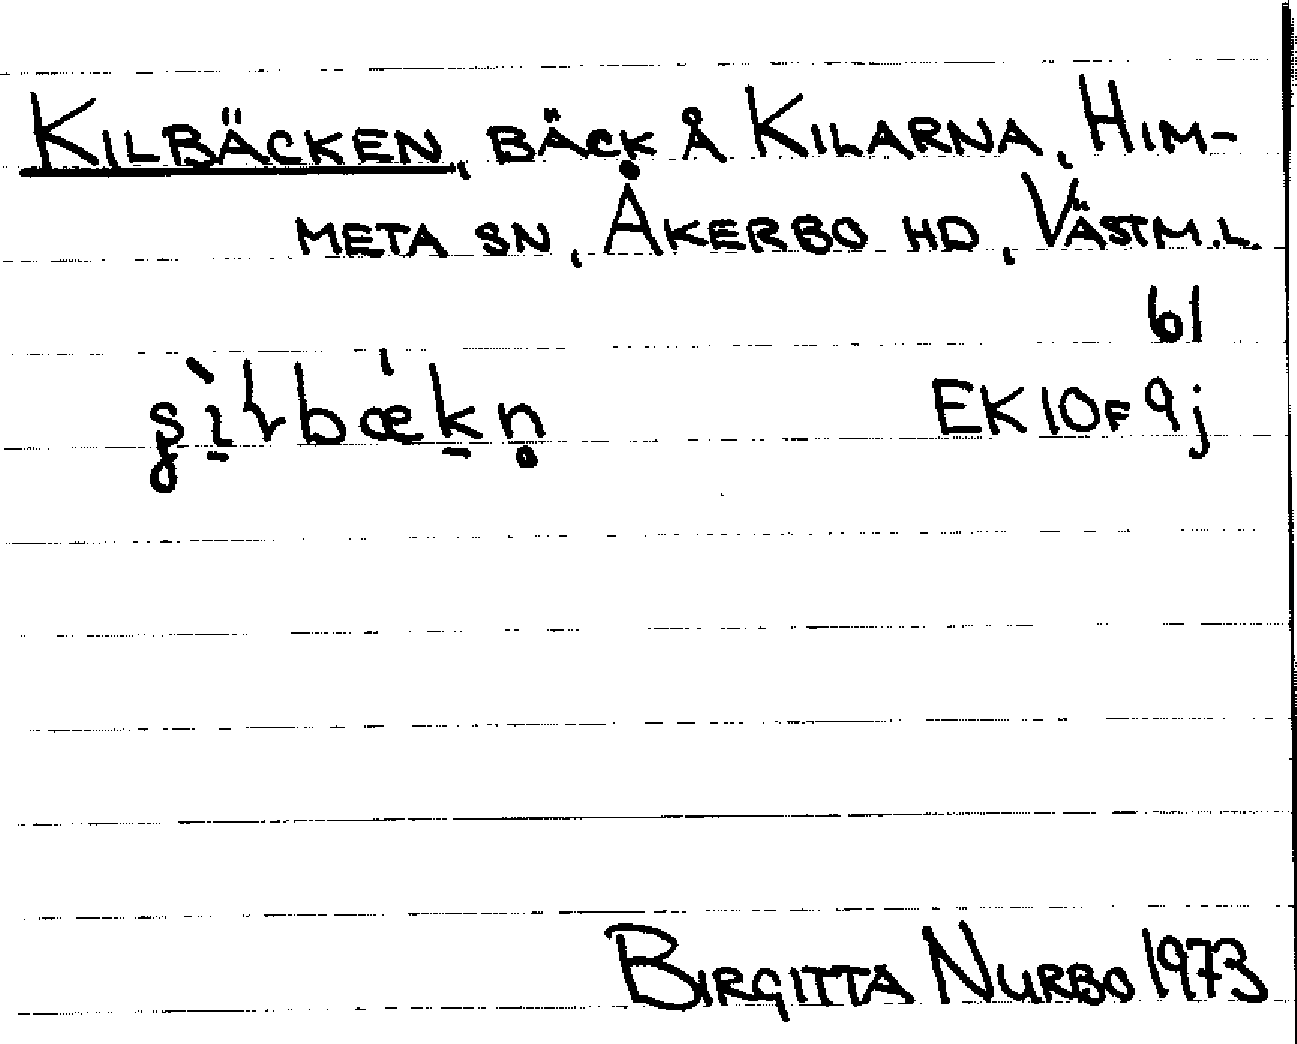 KILBÄCKEN, BÄCK Å KILARNA, HIM-
META SN, ÅKERBO HD, VÄSTM.L.
61
EK 10F 9j
BIRGITTA NURBO 1973